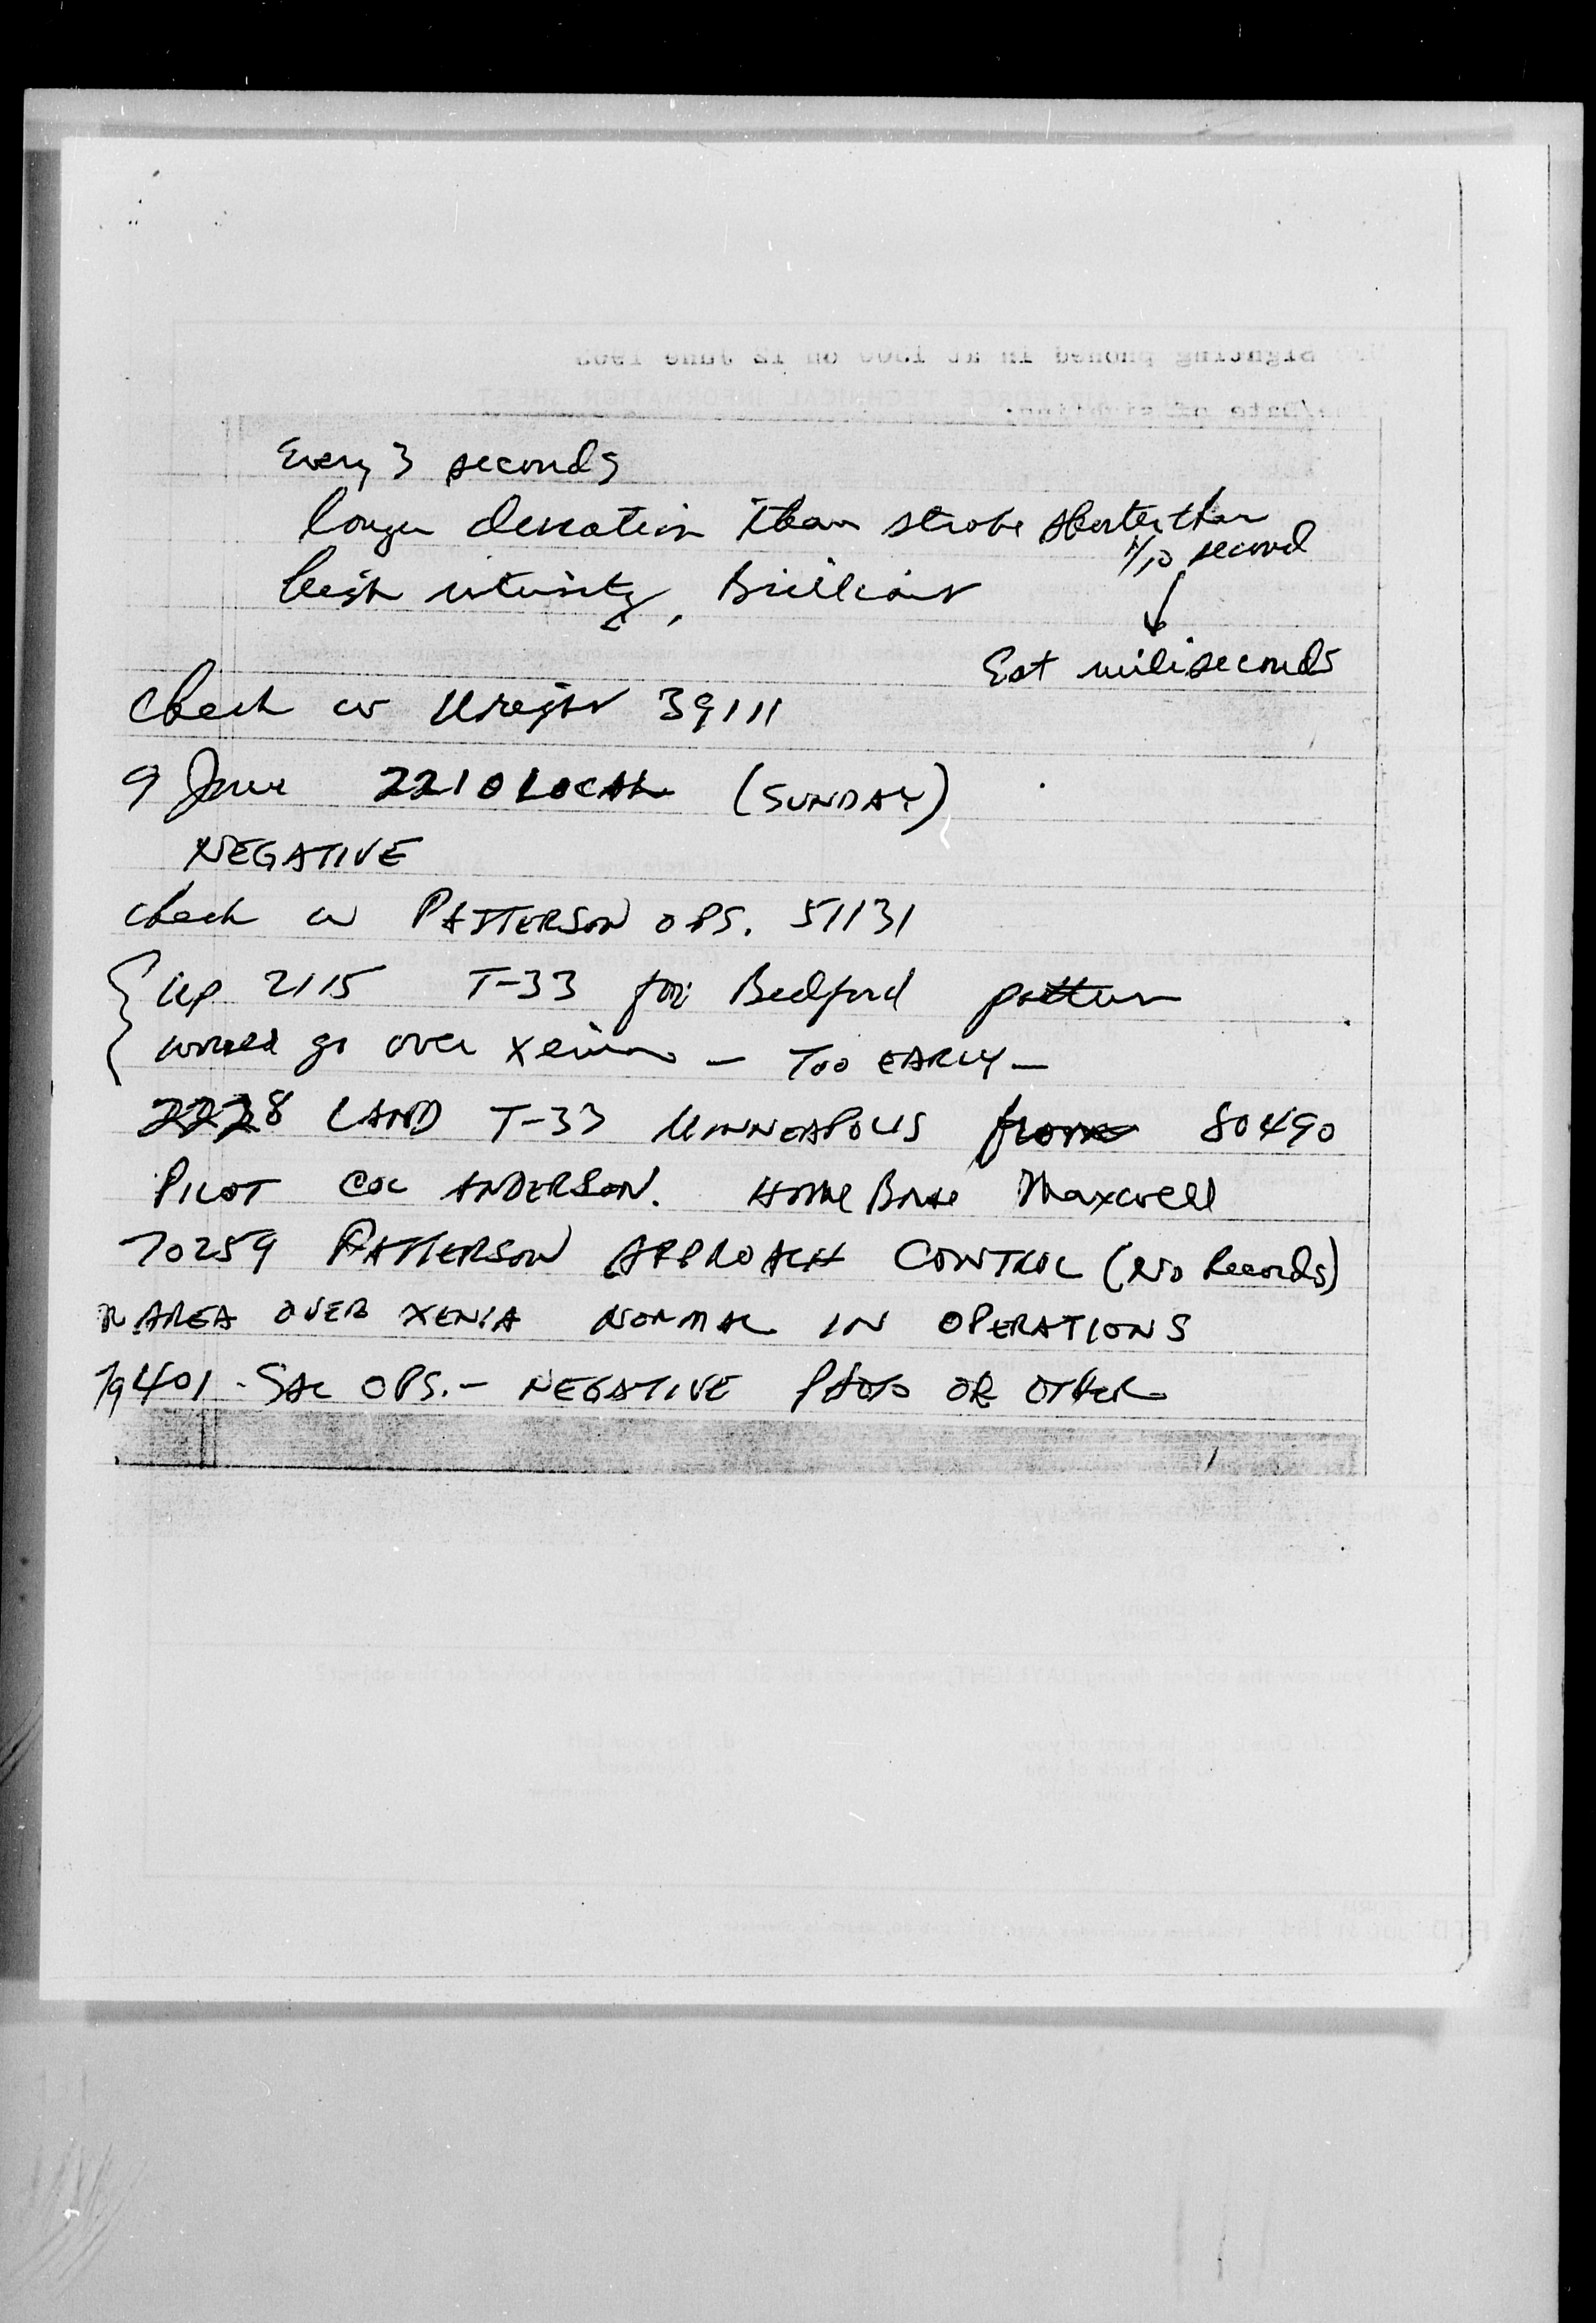 Every 3 seconds
longer duration than strobe shorter than
1/10 second
high intensity, Brilliant
Est miliseconds
Check w Wright 39111
9 June 2210 LOCAL (SUNDAY)
NEGATIVE
check w PATTERSON OPS. 51131
Up 2115 T-33 for Bedford pattern
would go over Xenia - TOO EARLY -
2228 LAND T-33 MINNEAPOLIS from 80490
PILOT COL ANDERSON. HOME BASE Maxwell
70259 PATTERSON APPROACH CONTROL (No Records)
AREA OVER XENIA NORMAL IN OPERATIONS
79401 - SAC OPS. - NEGATIVE PHOTO OR OTHER